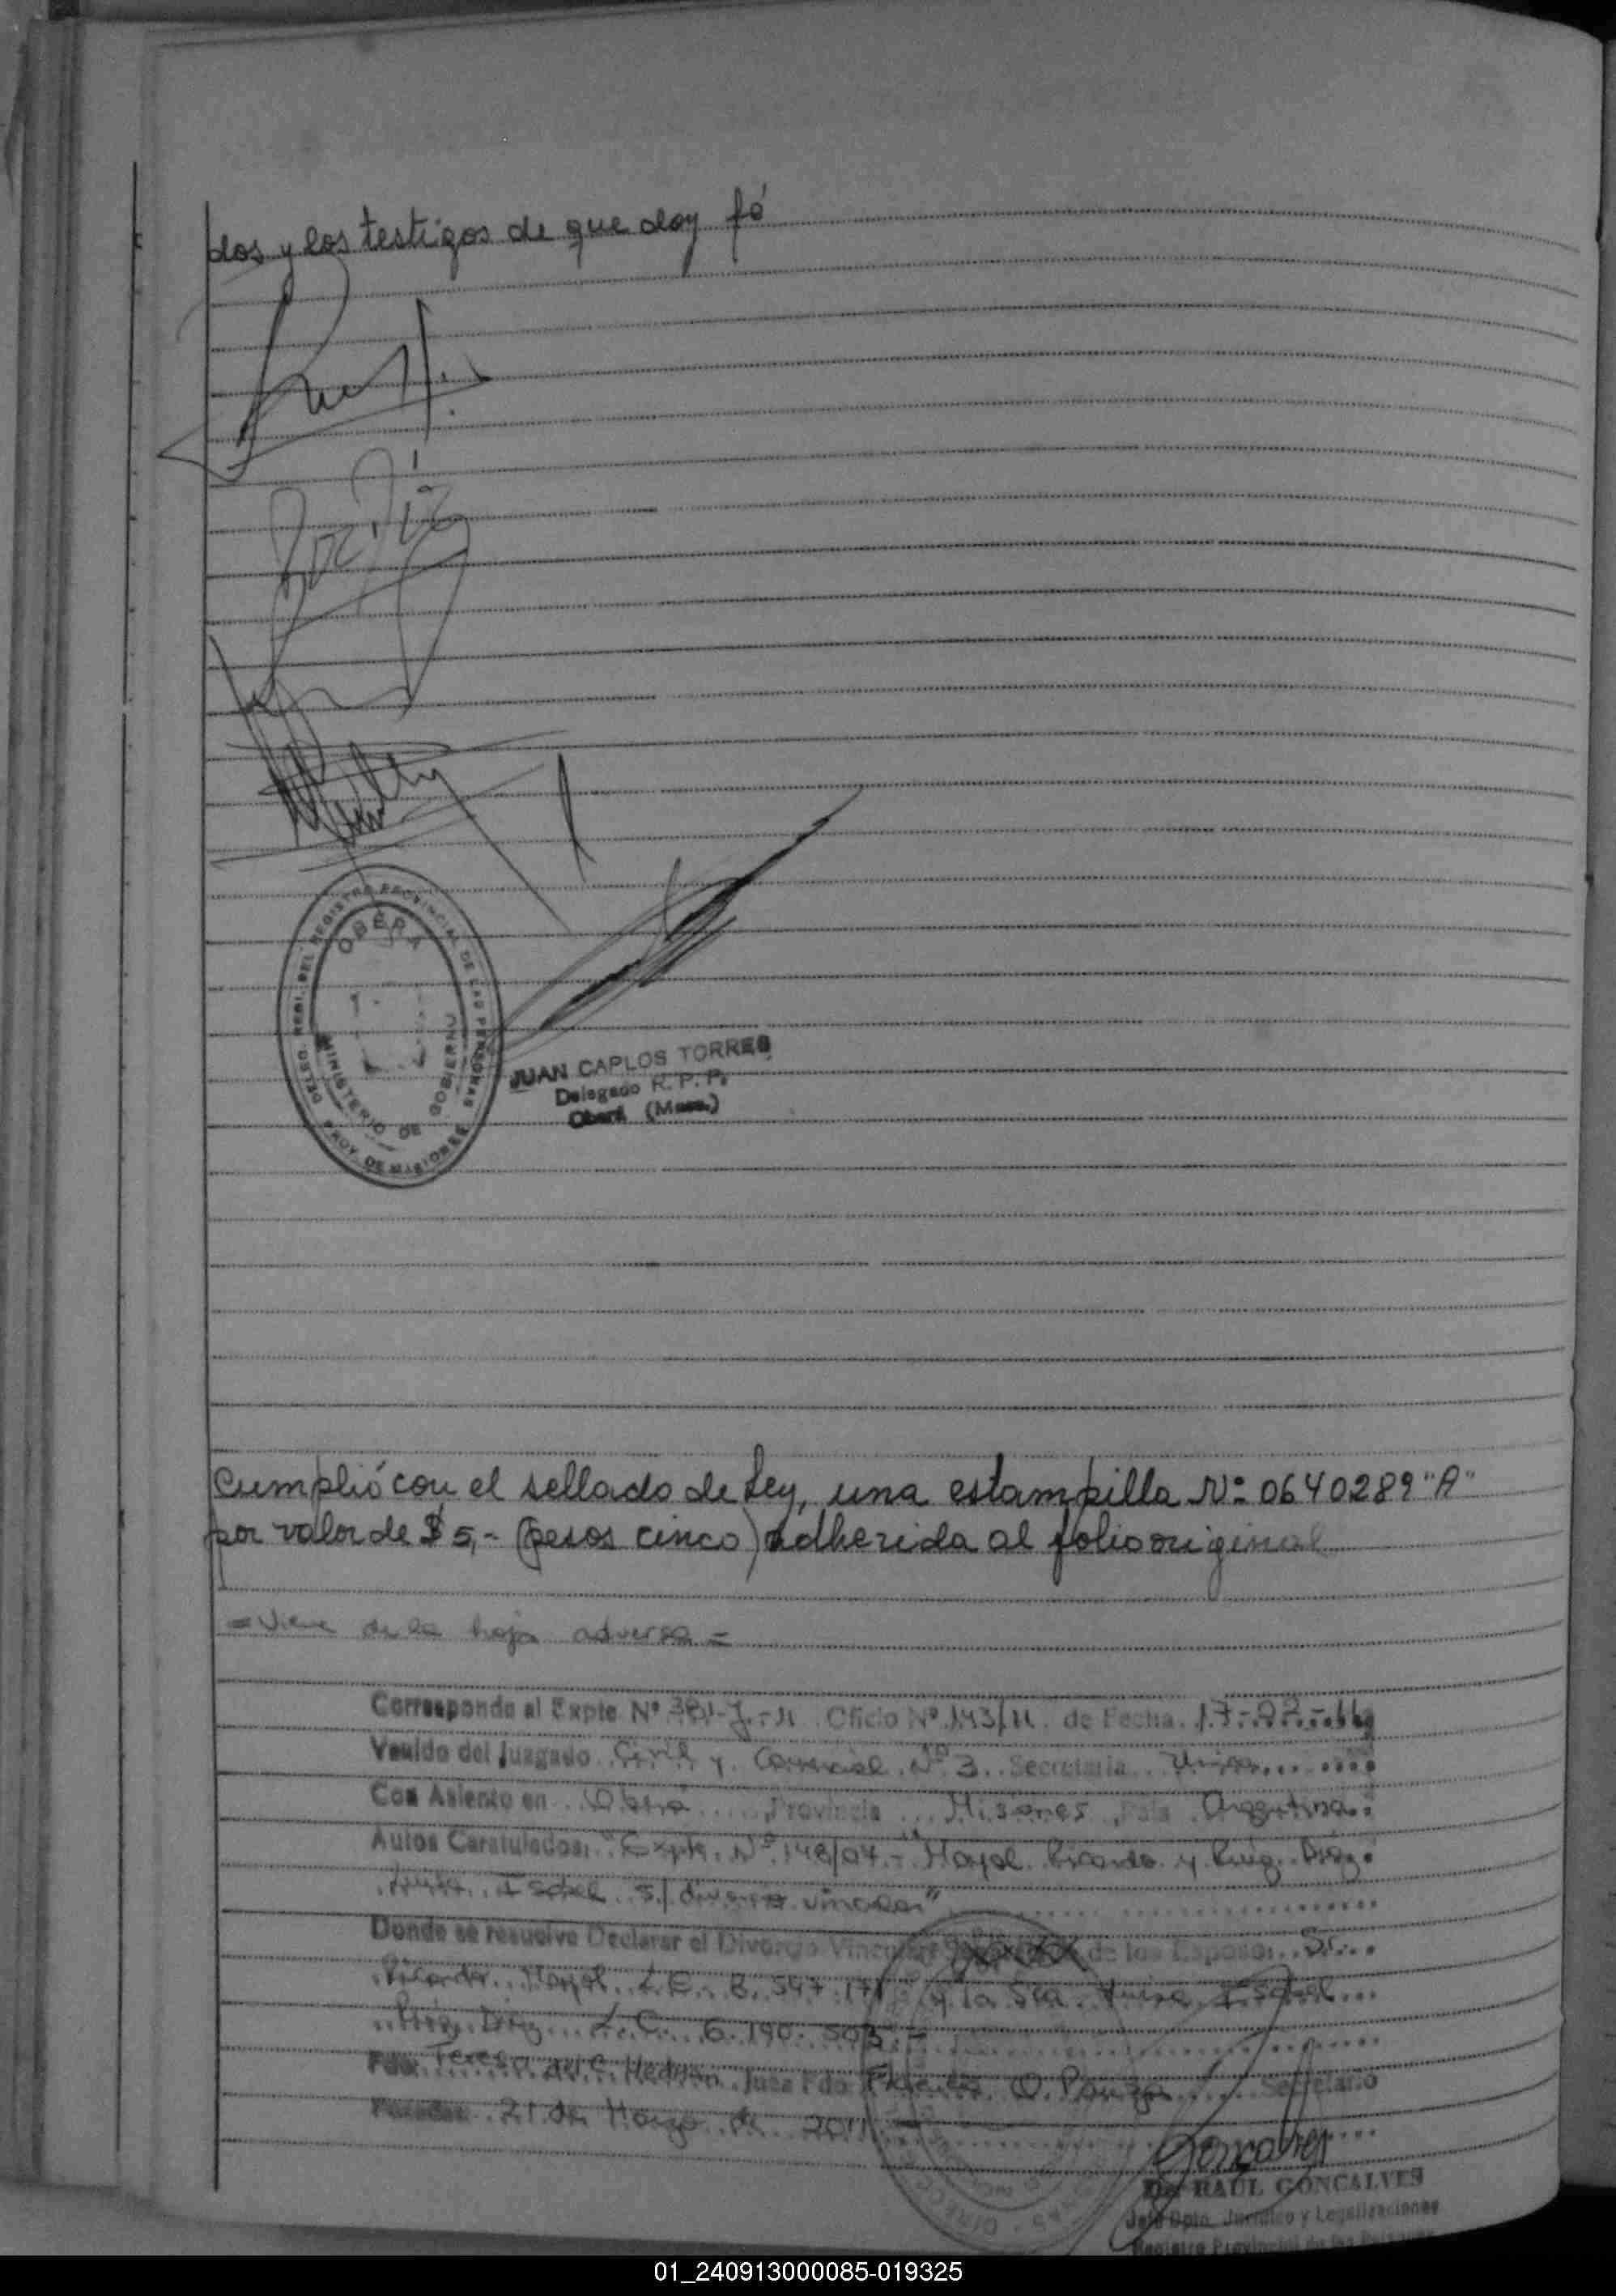 dos y los testigos de que doy fé
DEL REGISTRO PROVINCIAL DE LAS PERSONAS
OBERA
MINISTERIO DE GOBIERNO
DE MISIONES
JUAN CARLOS TORRES
Delegado R. P. P.
Oberá (Mnes.)
Cumplió con el sellado de Ley, una estampilla Nº 0640289 "A"
por valor de $ 5,- (pesos cinco) adherida al folio original
= Viene de la hoja adversa =
Corresponde al Expte Nº 381-J-11 Oficio Nº 143/11 de Fecha 17-02-11
Venido del Juzgado Civil y Comercial Nº 3 Secretaría Unica
Con Asiento en Oberá Provincia Misiones País Argentina
Autos Caratulados: "Expte. Nº 148/04.- Mayol Ricardo y Puig Diaz
Luisa Isabel s/ divorcio vincular"
Donde se resuelve Declarar el Divorcio Vincular de los Esposos Sr.
Ricardo Mayol L.E. 8.547.171 y la Sra. Luisa Isabel
Puig Diaz L.C. 6.190.503.-
Fdo: Teresa del C. Hedman Juez Fdo O. Secretario
Posadas 21 de Marzo de 2011
Goncalves
Dr. RAUL GONCALVES
Jefe Dpto. Jurídico y Legalizaciones
Registro Provincial de las Personas
01_240913000085-019325